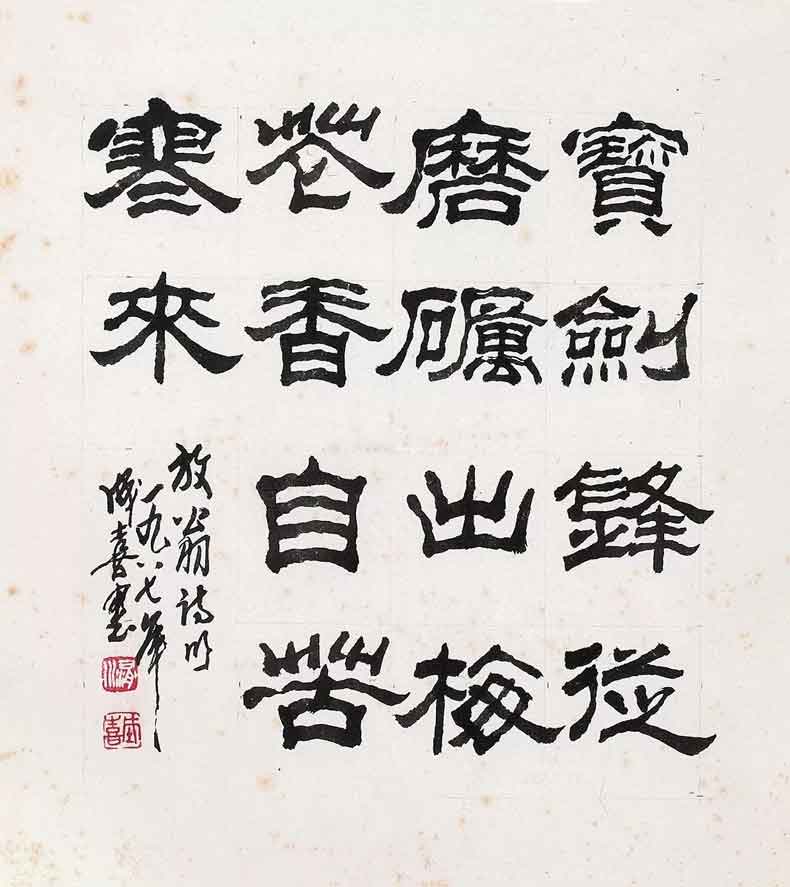 寶劍鋒從
磨礪出梅
花香自苦
寒來
放翁诗
一九八七年
成喜書